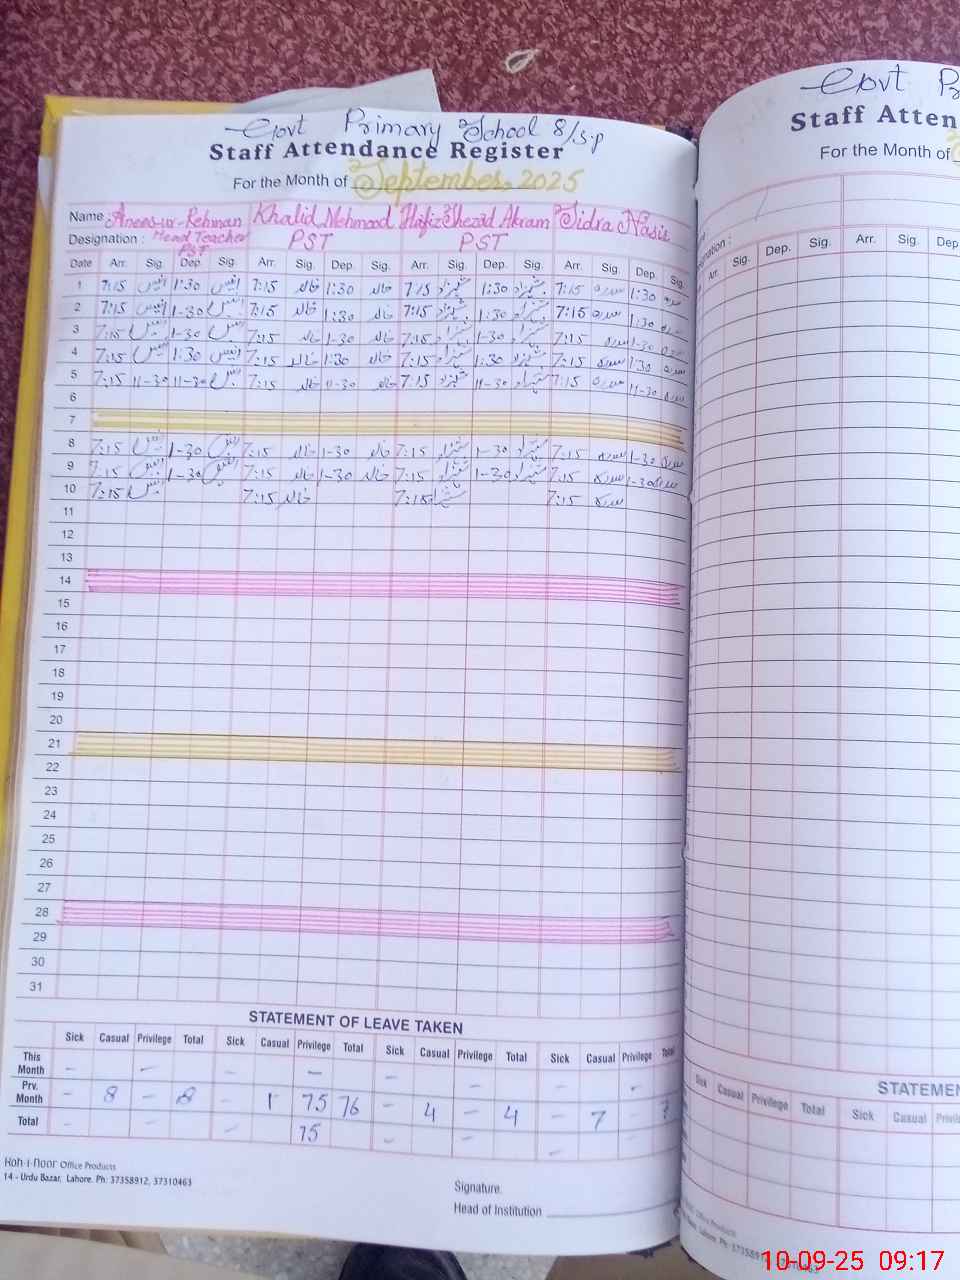 Govt Primary School 8/s.p
Staff Attendance Register
For the Month of September 2025
Name : Anees-ur-Rehman Khalid Mehmood Hafiz Shezad Akram Sidra Nasir
Designation : Head Teacher PST PST PST
Date Arr. Sig. Dep. Sig. Arr. Sig. Dep. Sig. Arr. Sig. Dep. Sig. Arr. Sig. Dep. Sig.
1 7:15 انیس 1:30 انیس 7:15 خالد 1:30 خالد 7:15 شہزاد 1:30 شہزاد 7:15 سدرہ 1:30 سدرہ
2 7:15 انیس 1-30 انیس 7:15 خالد 1:30 خالد 7:15 شہزاد 1:30 شہزاد 7:15 سدرہ 1:30 سدرہ
3 7:15 انیس 1-30 انیس 7:15 خالد 1-30 خالد 7:15 شہزاد 1-30 شہزاد 7:15 سدرہ 1-30 سدرہ
4 7:15 انیس 1:30 انیس 7:15 خالد 1:30 خالد 7:15 شہزاد 1:30 شہزاد 7:15 سدرہ 1:30 سدرہ
5 7:15 11-30 11-30 انیس 7:15 خالد 11-30 خالد 7:15 شہزاد 11-30 شہزاد 7:15 سدرہ 11-30 سدرہ
6
7
8 7:15 انیس 1-30 انیس 7:15 خالد 1-30 خالد 7:15 شہزاد 1-30 شہزاد 7:15 سدرہ 1-30 سدرہ
9 7:15 انیس 1-30 انیس 7:15 خالد 1-30 خالد 7:15 شہزاد 1-30 شہزاد 7:15 سدرہ 1-30 سدرہ
10 7:15 انیس 7:15 خالد 7:15 شہزاد 7:15 سدرہ
11
12
13
14
15
16
17
18
19
20
21
22
23
24
25
26
27
28
29
30
31
STATEMENT OF LEAVE TAKEN
Sick Casual Privilege Total Sick Casual Privilege Total Sick Casual Privilege Total Sick Casual Privilege Total
This Month - - - - - - - -
Prv. Month - 8 - 8 - 1 75 76 - 4 - 4 - 7 - 7
Total - - - 75 - - - -
Koh-i-noor Office Products
14 - Urdu Bazar, Lahore. Ph: 37358912, 37310463
Signature.
Head of Institution
Govt Pr
Staff Atten
For the Month of
signation :
Arr. Sig. Dep. Sig. Arr. Sig. Dep
STATEMEN
Sick Casual Privilege Total Sick Casual Privile
Office Products
Lahore. Ph: 3735891
10-09-25 09:17